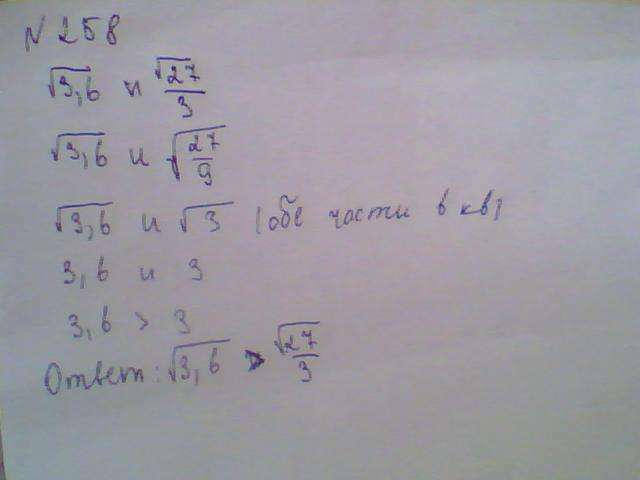 N 258
√3,6 и √27/3
√3,6 и √(27/9)
√3,6 и √3 (обе части в кв)
3,6 и 3
3,6 > 3
Ответ: √3,6 > √27/3